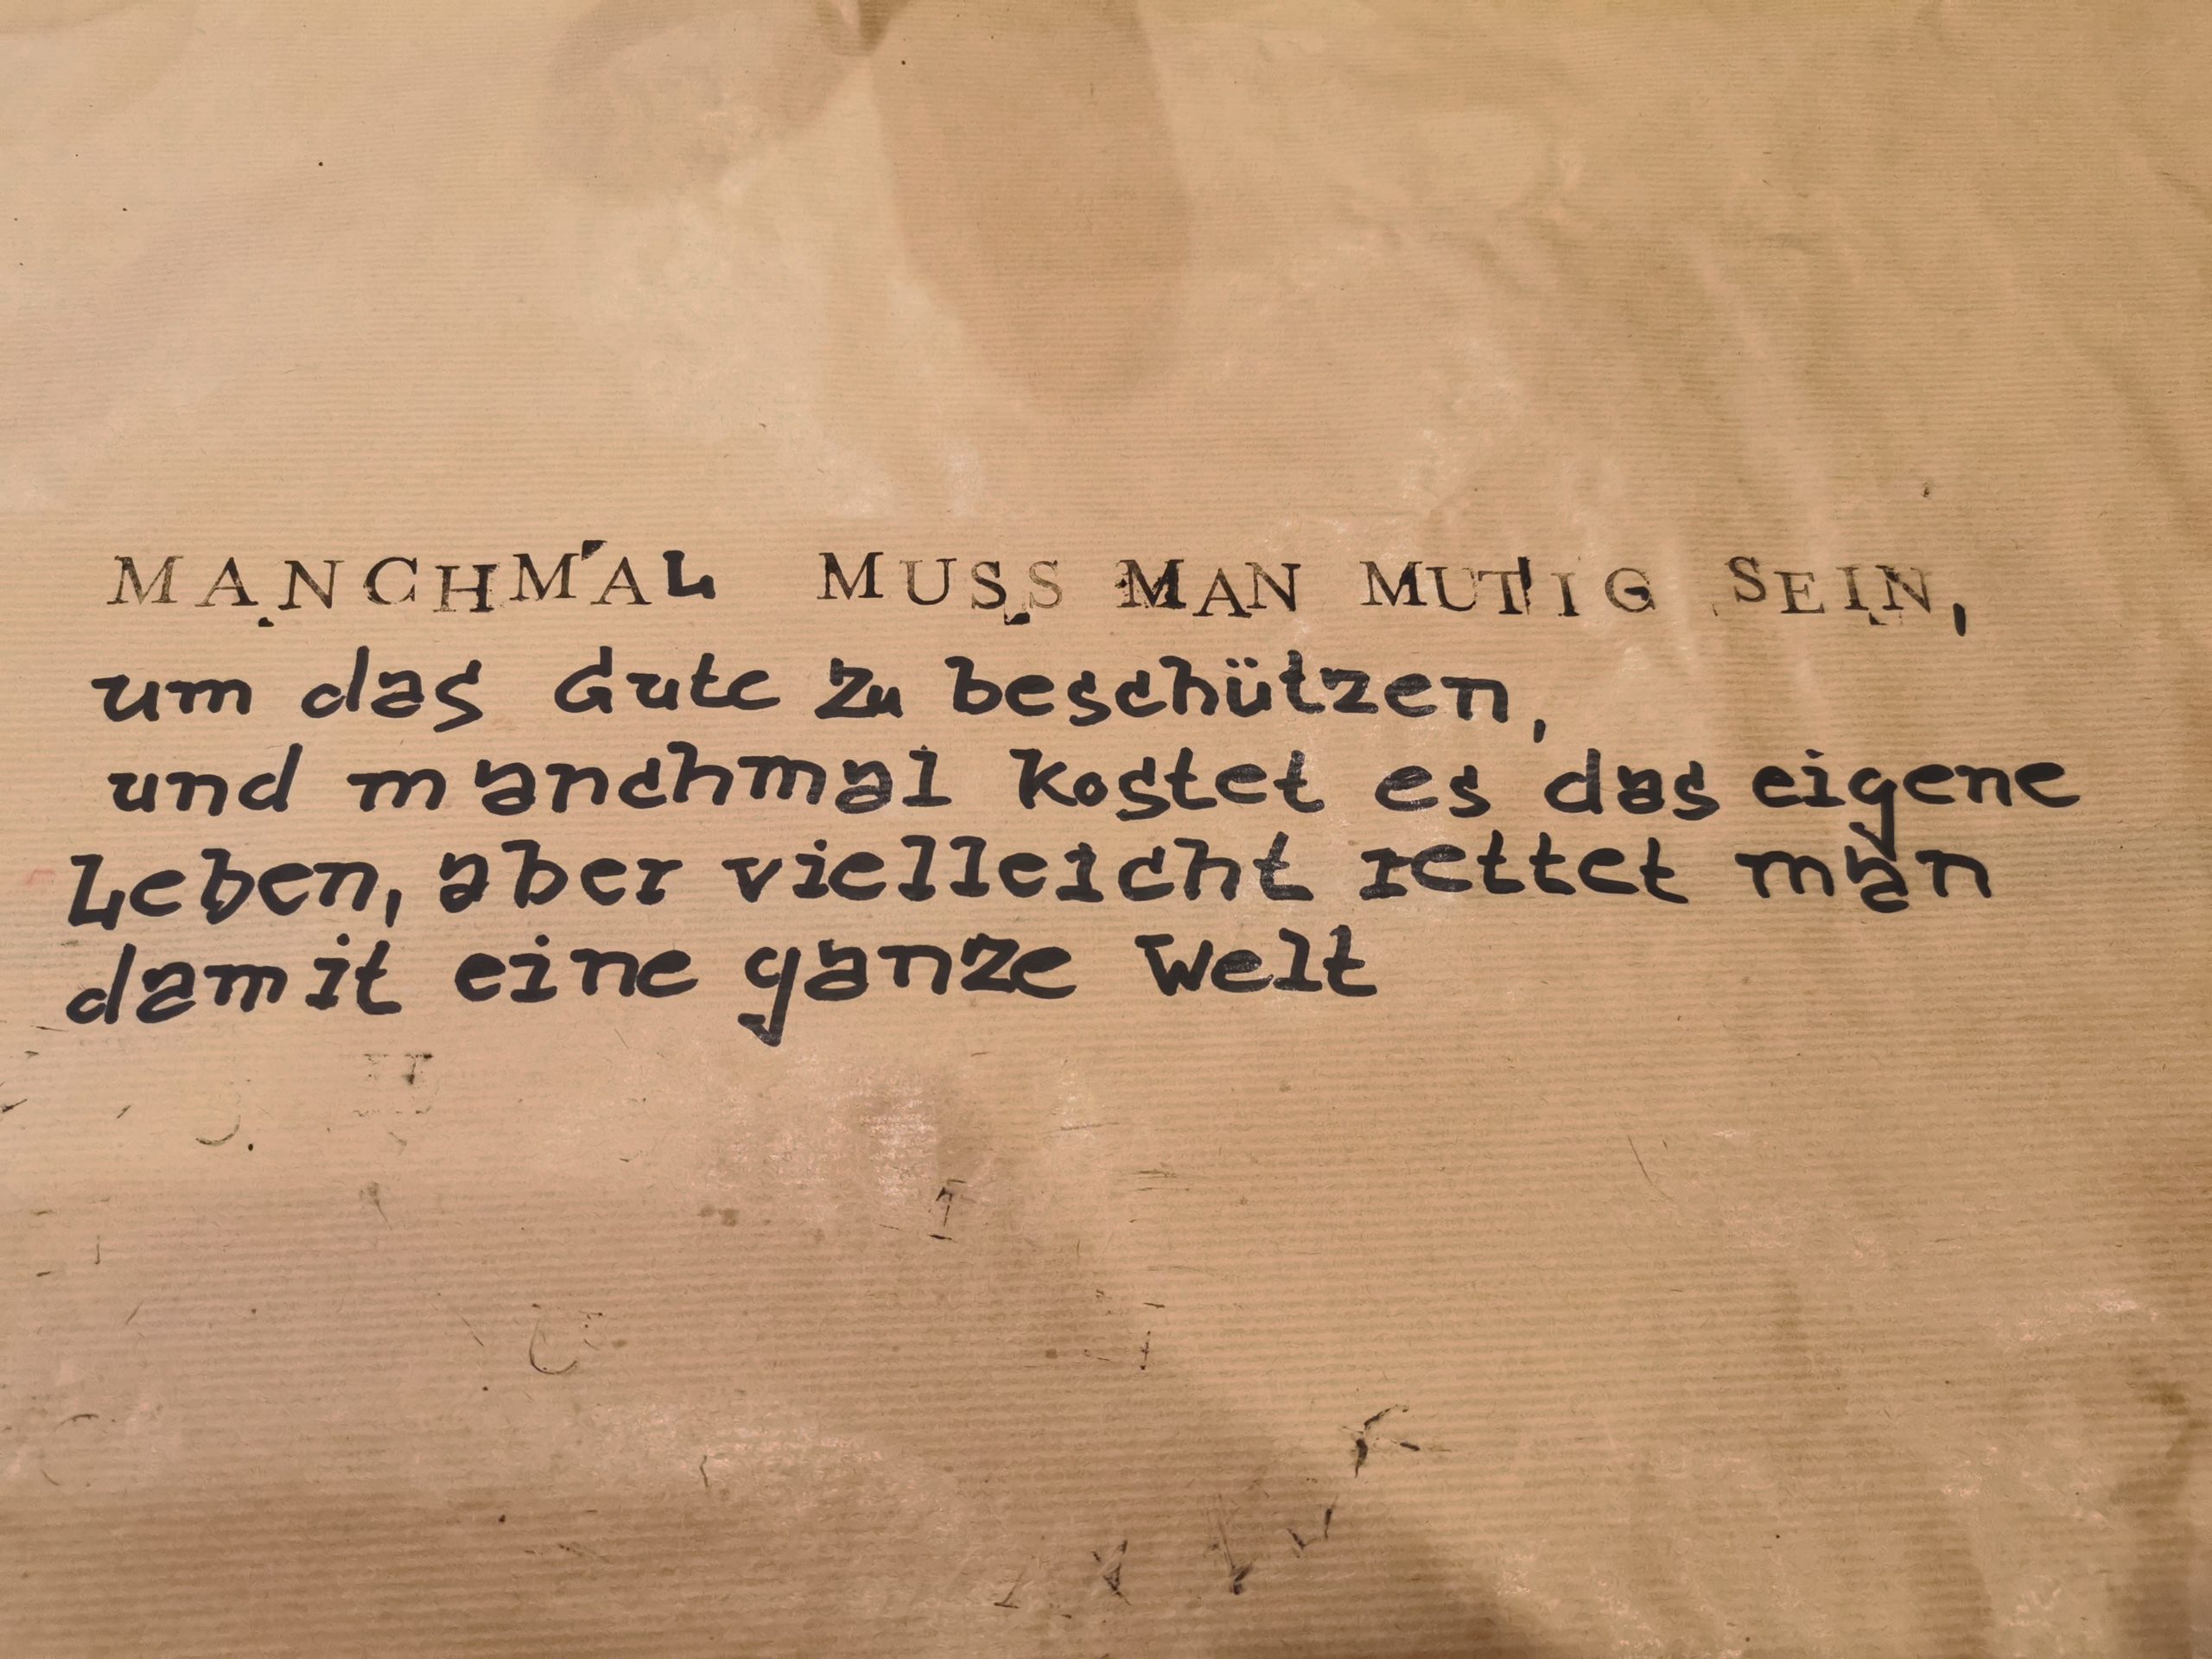 MANCHMAL MUSS MAN MUTIG SEIN,
um das Gute zu beschützen,
und manchmal kostet es das eigene
Leben, aber vielleicht rettet man
damit eine ganze Welt